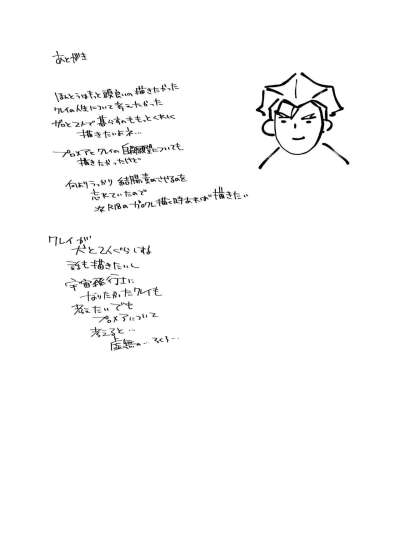 あとがき
ほんとうはもっと頭良いの描きたかった
クレイの人生について考えたかった
ガロと2人で暮らすのももっとくわしく
描きたいよね…
プロメアとクレイの についても
描きたかったけど
何よりうっかり 結腸責めさせるのを
忘れていたので
次R18のガロクレ描く時あれば描きたい
クレイが
犬と てんぐらしね
話も描きたいし
宇宙飛行士に
なりたかったクレイも
考えたいでも
プロメアについて
考えると…
虚無の…